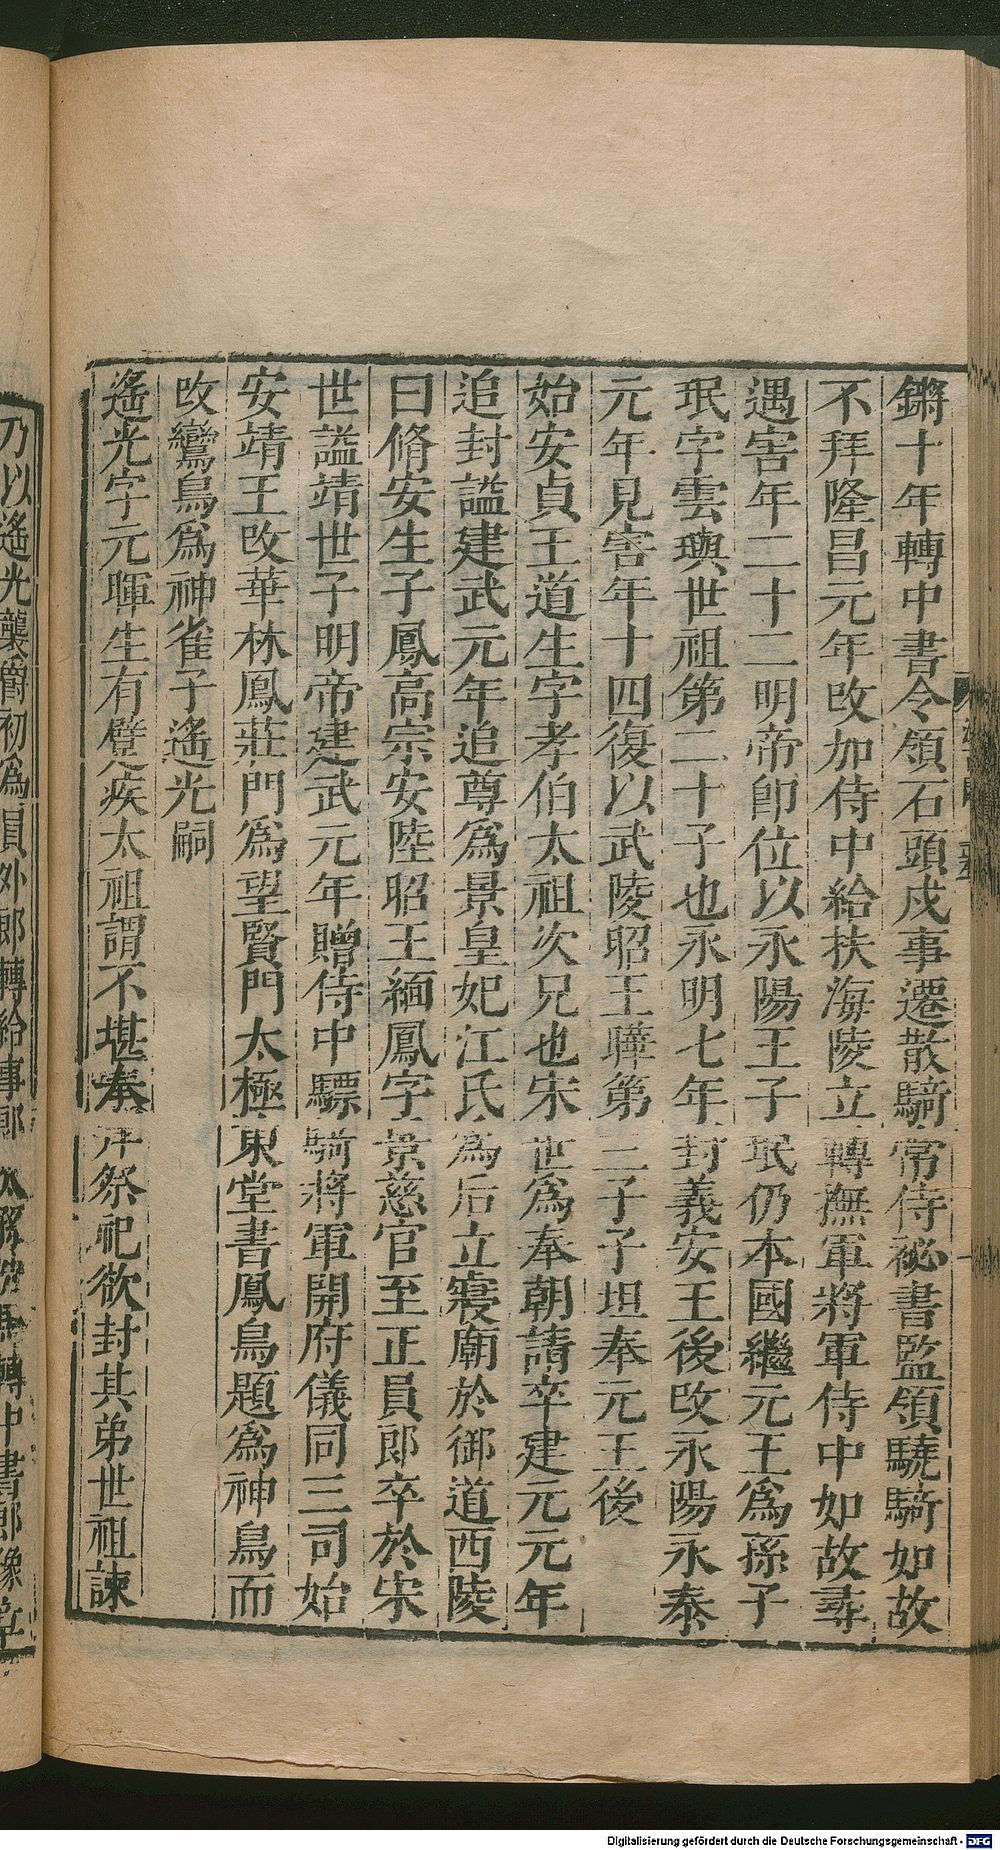 鏘十年轉中書令領石頭戍事遷散騎常侍祕書監領驍騎如故
不拜隆昌元年改加侍中給扶海陵立轉撫軍將軍侍中如故尋
遇害年二十二明帝卽位以永陽王子珉仍本國繼元王爲孫子
珉字雲璵世祖第二十子也永明七年封義安王後改永陽永泰
元年見害年十四復以武陵昭王曄第三子子坦奉元王後
始安貞王道生字孝伯太祖次兄也宋世爲奉朝請卒建元元年
追封謚建武元年追尊爲景皇妃江氏爲后立寢廟於御道西陵
曰脩安生子鳳高宗安陸昭王緬鳳字景慈官至正員郎卒於宋
世謚靖世子明帝建武元年贈侍中驃騎將軍開府儀同三司始
安靖王改華林鳳莊門爲望賢門太極東堂書鳳鳥題爲神鳥而
改鸞鳥爲神雀子遙光嗣
遙光字元暉生有躄疾太祖謂不堪奉拜祭祀欲封其弟世祖諫
乃以遙光襲爵初爲員外郎轉給事郎太孫洗馬轉中書郎豫章
Digitalisierung gefördert durch die Deutsche Forschungsgemeinschaft - DFG